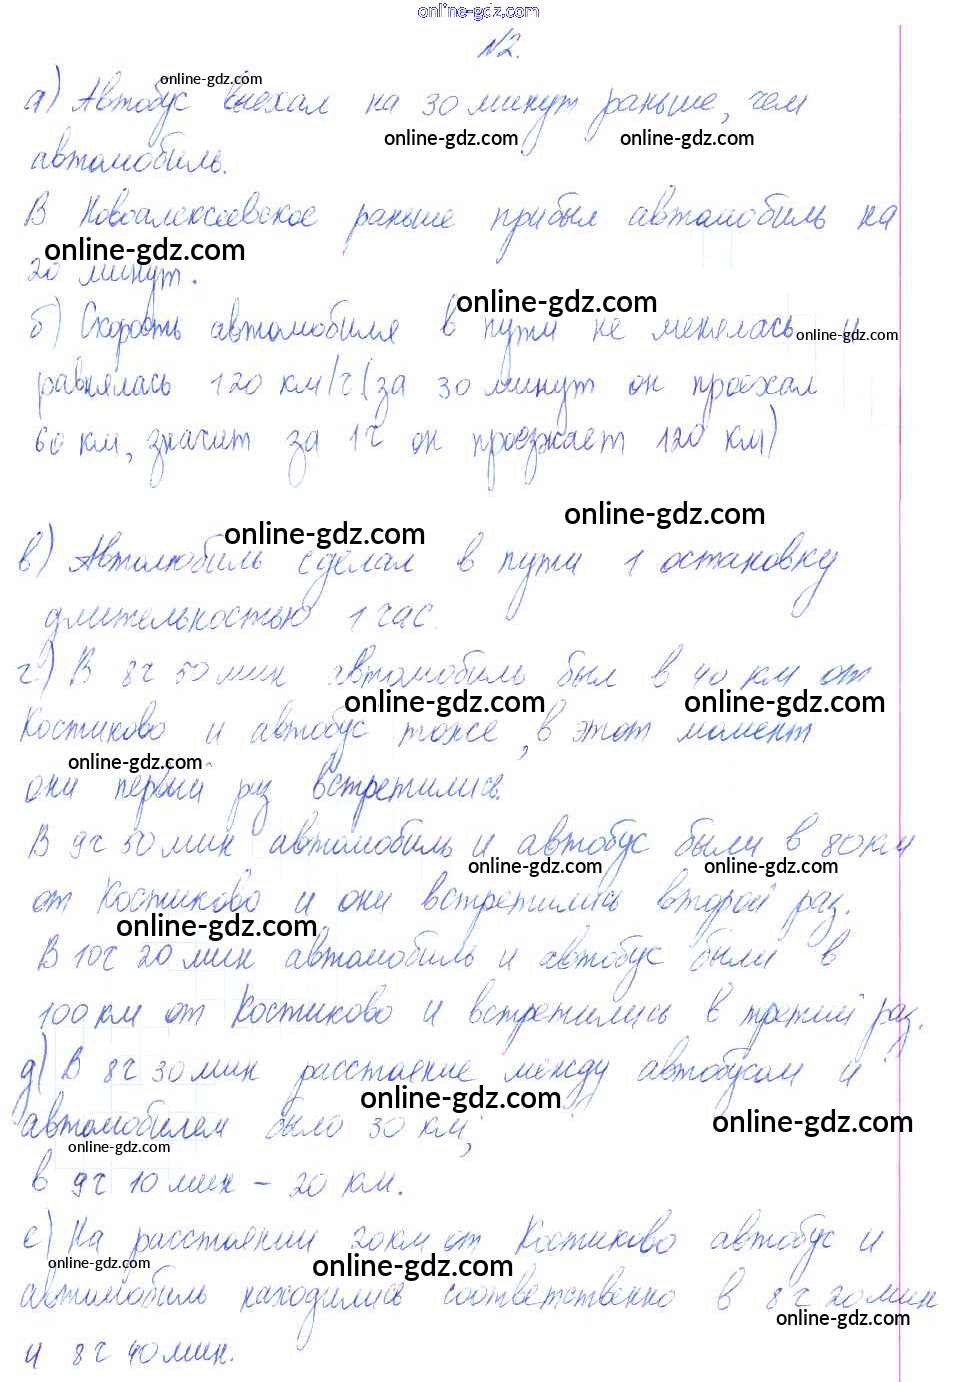 online-gdz.com
№2.
online-gdz.com
а) Автобус выехал на 30 минут раньше, чем
online-gdz.com online-gdz.com
автомобиль.
В Новоалексеевское раньше прибыл автомобиль на
online-gdz.com
20 минут.
online-gdz.com
б) Скорость автомобиля в пути не менялась и
online-gdz.com
равнялась 120 км/ч (за 30 минут он проехал
60 км, значит за 1 ч он проезжает 120 км)
online-gdz.com
online-gdz.com
в) Автомобиль сделал в пути 1 остановку
длительностью 1 час.
г) В 8ч 50 мин автомобиль был в 40 км от
online-gdz.com online-gdz.com
Костиково и автобус тоже, в этот момент
online-gdz.com
они первый раз встретились.
В 9ч 50 мин автомобиль и автобус были в 80 км
online-gdz.com online-gdz.com
от Костиково и они встретились второй раз.
online-gdz.com
В 10ч 20 мин автомобиль и автобус были в
100 км от Костиково и встретились в третий раз.
д) В 8ч 30 мин расстояние между автобусом и
online-gdz.com
автомобилем было 30 км;
online-gdz.com
online-gdz.com
в 9ч 10 мин – 20 км.
е) На расстоянии 20 км от Костиково автобус и
online-gdz.com online-gdz.com
автомобиль находились соответственно в 8ч 20 мин
online-gdz.com
и 8ч 40 мин.